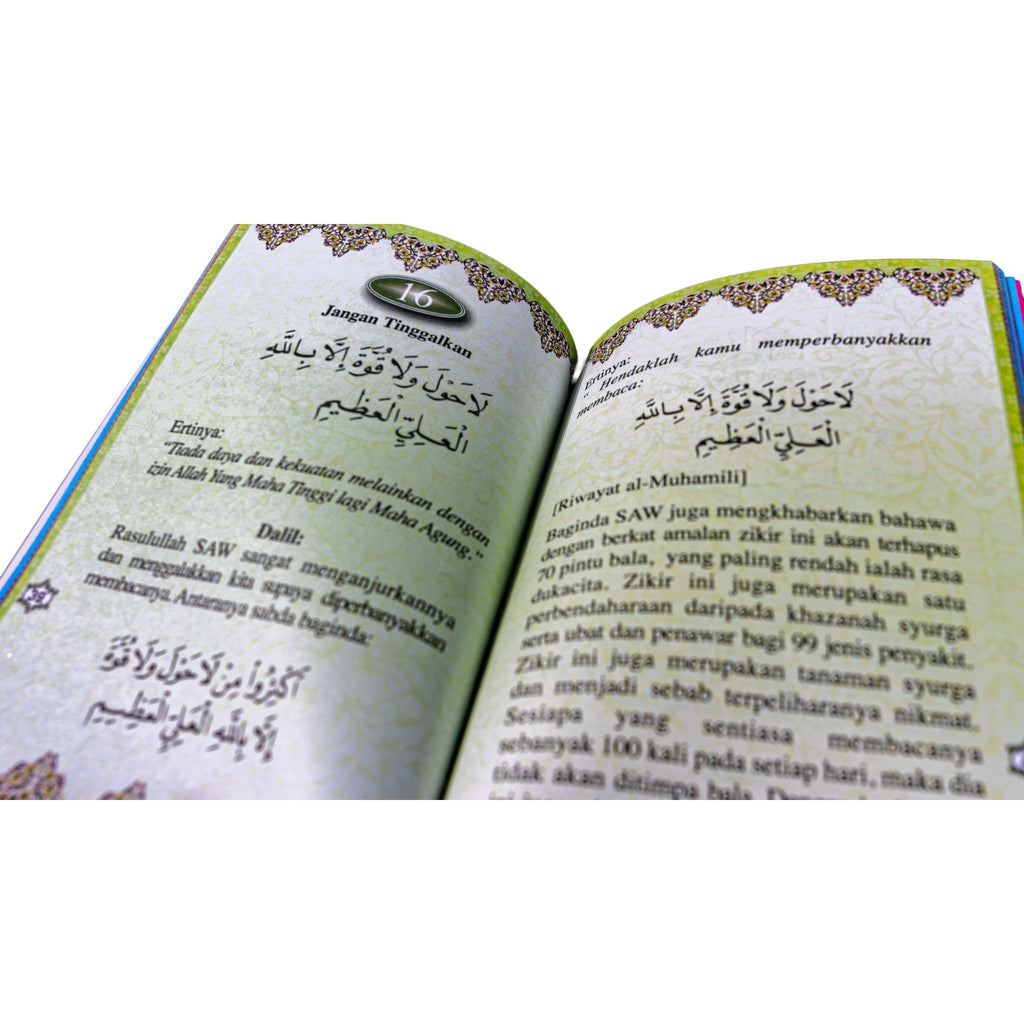 16
Jangan Tinggalkan
لَا حَوْلَ وَلَا قُوَّةَ إِلَّا بِاللَّهِ
الْعَلِيِّ الْعَظِيمِ
Ertinya:
"Tiada daya dan kekuatan melainkan dengan
izin Allah Yang Maha Tinggi lagi Maha Agung."
Dalil:
Rasulullah SAW sangat menganjurkannya
dan menggalakkan kita supaya diperbanyakkan
membacanya. Antaranya sabda baginda:
أَكْثِرُوا مِنْ لَا حَوْلَ وَلَا قُوَّةَ
إِلَّا بِاللَّهِ الْعَلِيِّ الْعَظِيمِ
Ertinya:
" Hendaklah kamu memperbanyakkan
membaca:
لَا حَوْلَ وَلَا قُوَّةَ إِلَّا بِاللَّهِ
الْعَلِيِّ الْعَظِيمِ
[Riwayat al-Muhamili]
Baginda SAW juga mengkhabarkan bahawa
dengan berkat amalan zikir ini akan terhapus
70 pintu bala, yang paling rendah ialah rasa
dukacita. Zikir ini juga merupakan satu
perbendaharaan daripada khazanah syurga
serta ubat dan penawar bagi 99 jenis penyakit.
Zikir ini juga merupakan tanaman syurga
dan menjadi sebab terpeliharanya nikmat.
Sesiapa yang sentiasa membacanya
sebanyak 100 kali pada setiap hari, maka dia
tidak akan ditimpa bala.